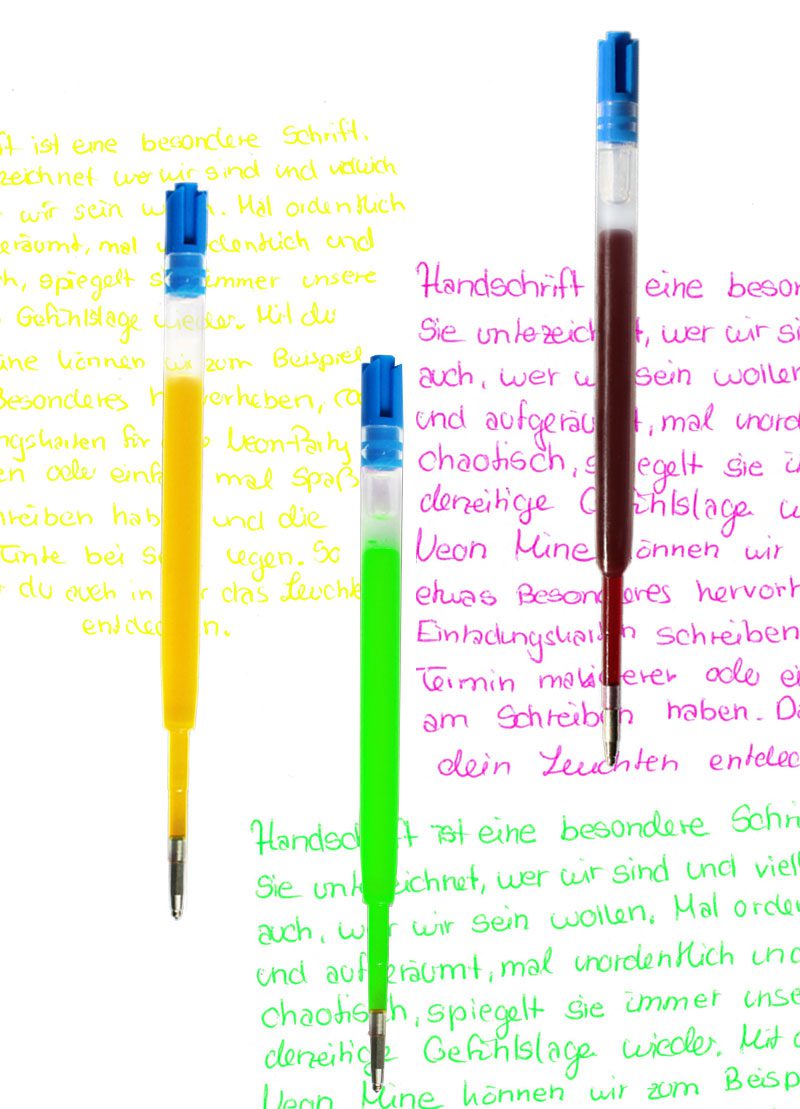 ft ist eine besondere Schrift.
zeichnet wer wir sind und vielleich
wir sein w en. Mal ordentlich
eräumt, mal u dentlich und
h, spiegelt s immer unsere
Gefühlslage wieder. Mit du
ine können wir zum Beispiel
Besonderes h vorheben,
ngskarten für Neon-Party
en oder einfa mal Spaß
hreiben hab und die
Tinte bei S egen. So
du auch in das Leuchte
entdec n.
Handschrift eine beson
Sie unterzeichn t, wer wir si
auch, wer w sein wollen
und aufgeräu t, mal unord
chaotisch, s egelt sie i
derzeitige G fühlslage w
Neon Mine önnen wir
etwas Besonderes hervorh
Einladungskarten schreiben
Termin markierer oder ei
am Schreiben haben. Da
dein Leuchten entdec
Handschrift ist eine besondere Schri
Sie unterzeichnet, wer wir sind und viell
auch, we wir sein wollen. Mal orden
und aufgeräumt, mal unordentlich und
chaotisch, spiegelt sie immer unse
derzeitige Gefühlslage wieder. Mit d
Neon Mine können wir zum Beispi